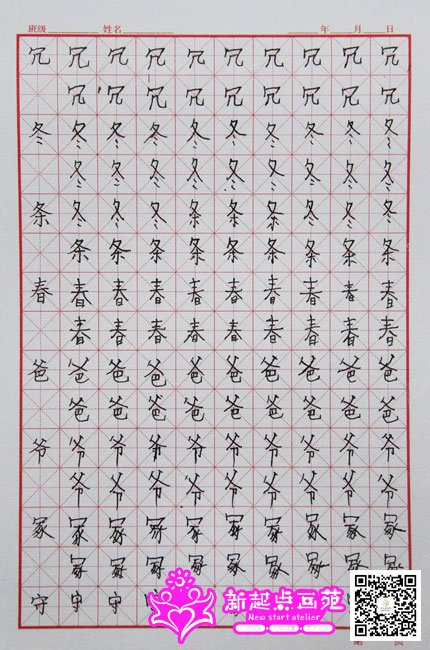 班级 姓名 年 月 日
冗 冗 冗 冗 冗 冗 冗 冗 冗 冗
冗 冗 冗 冗 冗 冗 冗 冗 冗
冬 冬 冬 冬 冬 冬 冬 冬 冬 冬
冬 冬 冬 冬 冬 冬 冬 冬 冬
条 冬 冬 冬 条 条 条 冬 冬 冬
条 条 条 条 条 条 条 条 条
春 春 春 春 春 春 春 春 春 春
春 春 春 春 春 春 春 春 春
爸 爸 爸 爸 爸 爸 爸 爸 爸 爸
爸 爸 爸 爸 爸 爸 爸 爸 爸
爷 爷 爷 爷 爷 爷 爷 爷 爷 爷
爷 爷 爷 爷 爷 爷 爷 爷 爷
冢 冢 冢 冢 冢 冢 冢 冢 冢 冢
冢 冢 冢 冢 冢 冢 冢 冢 冢
守 守 守
新起点画苑
New start atelier
第 页